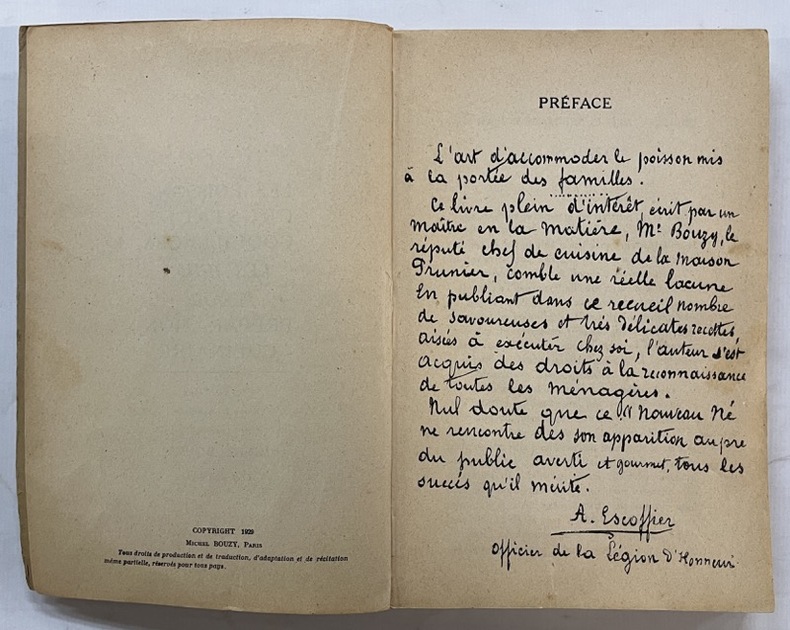 COPYRIGHT 1929
MICHEL BOUZY, PARIS
Tous droits de production et de traduction, d'adaptation et de récitation
même partielle, réservés pour tous pays.
PRÉFACE
L'art d'accommoder le poisson mis
à la portée des familles.
Ce livre plein d'intérêt, écrit par un
maître en la matière, Mr Bouzy, le
réputé chef de cuisine de la maison
Prunier, comble une réelle lacune
En publiant dans ce recueil nombre
de savoureuses et très délicates recettes,
aisées à exécuter chez soi, l'auteur s'est
acquis des droits à la reconnaissance
de toutes les ménagères.
Nul doute que ce " Nouveau Né
ne rencontre dès son apparition aupre
du public averti et gourmet, tous les
succès qu'il mérite.
A. Escoffier
Officier de la Légion d'Honneur